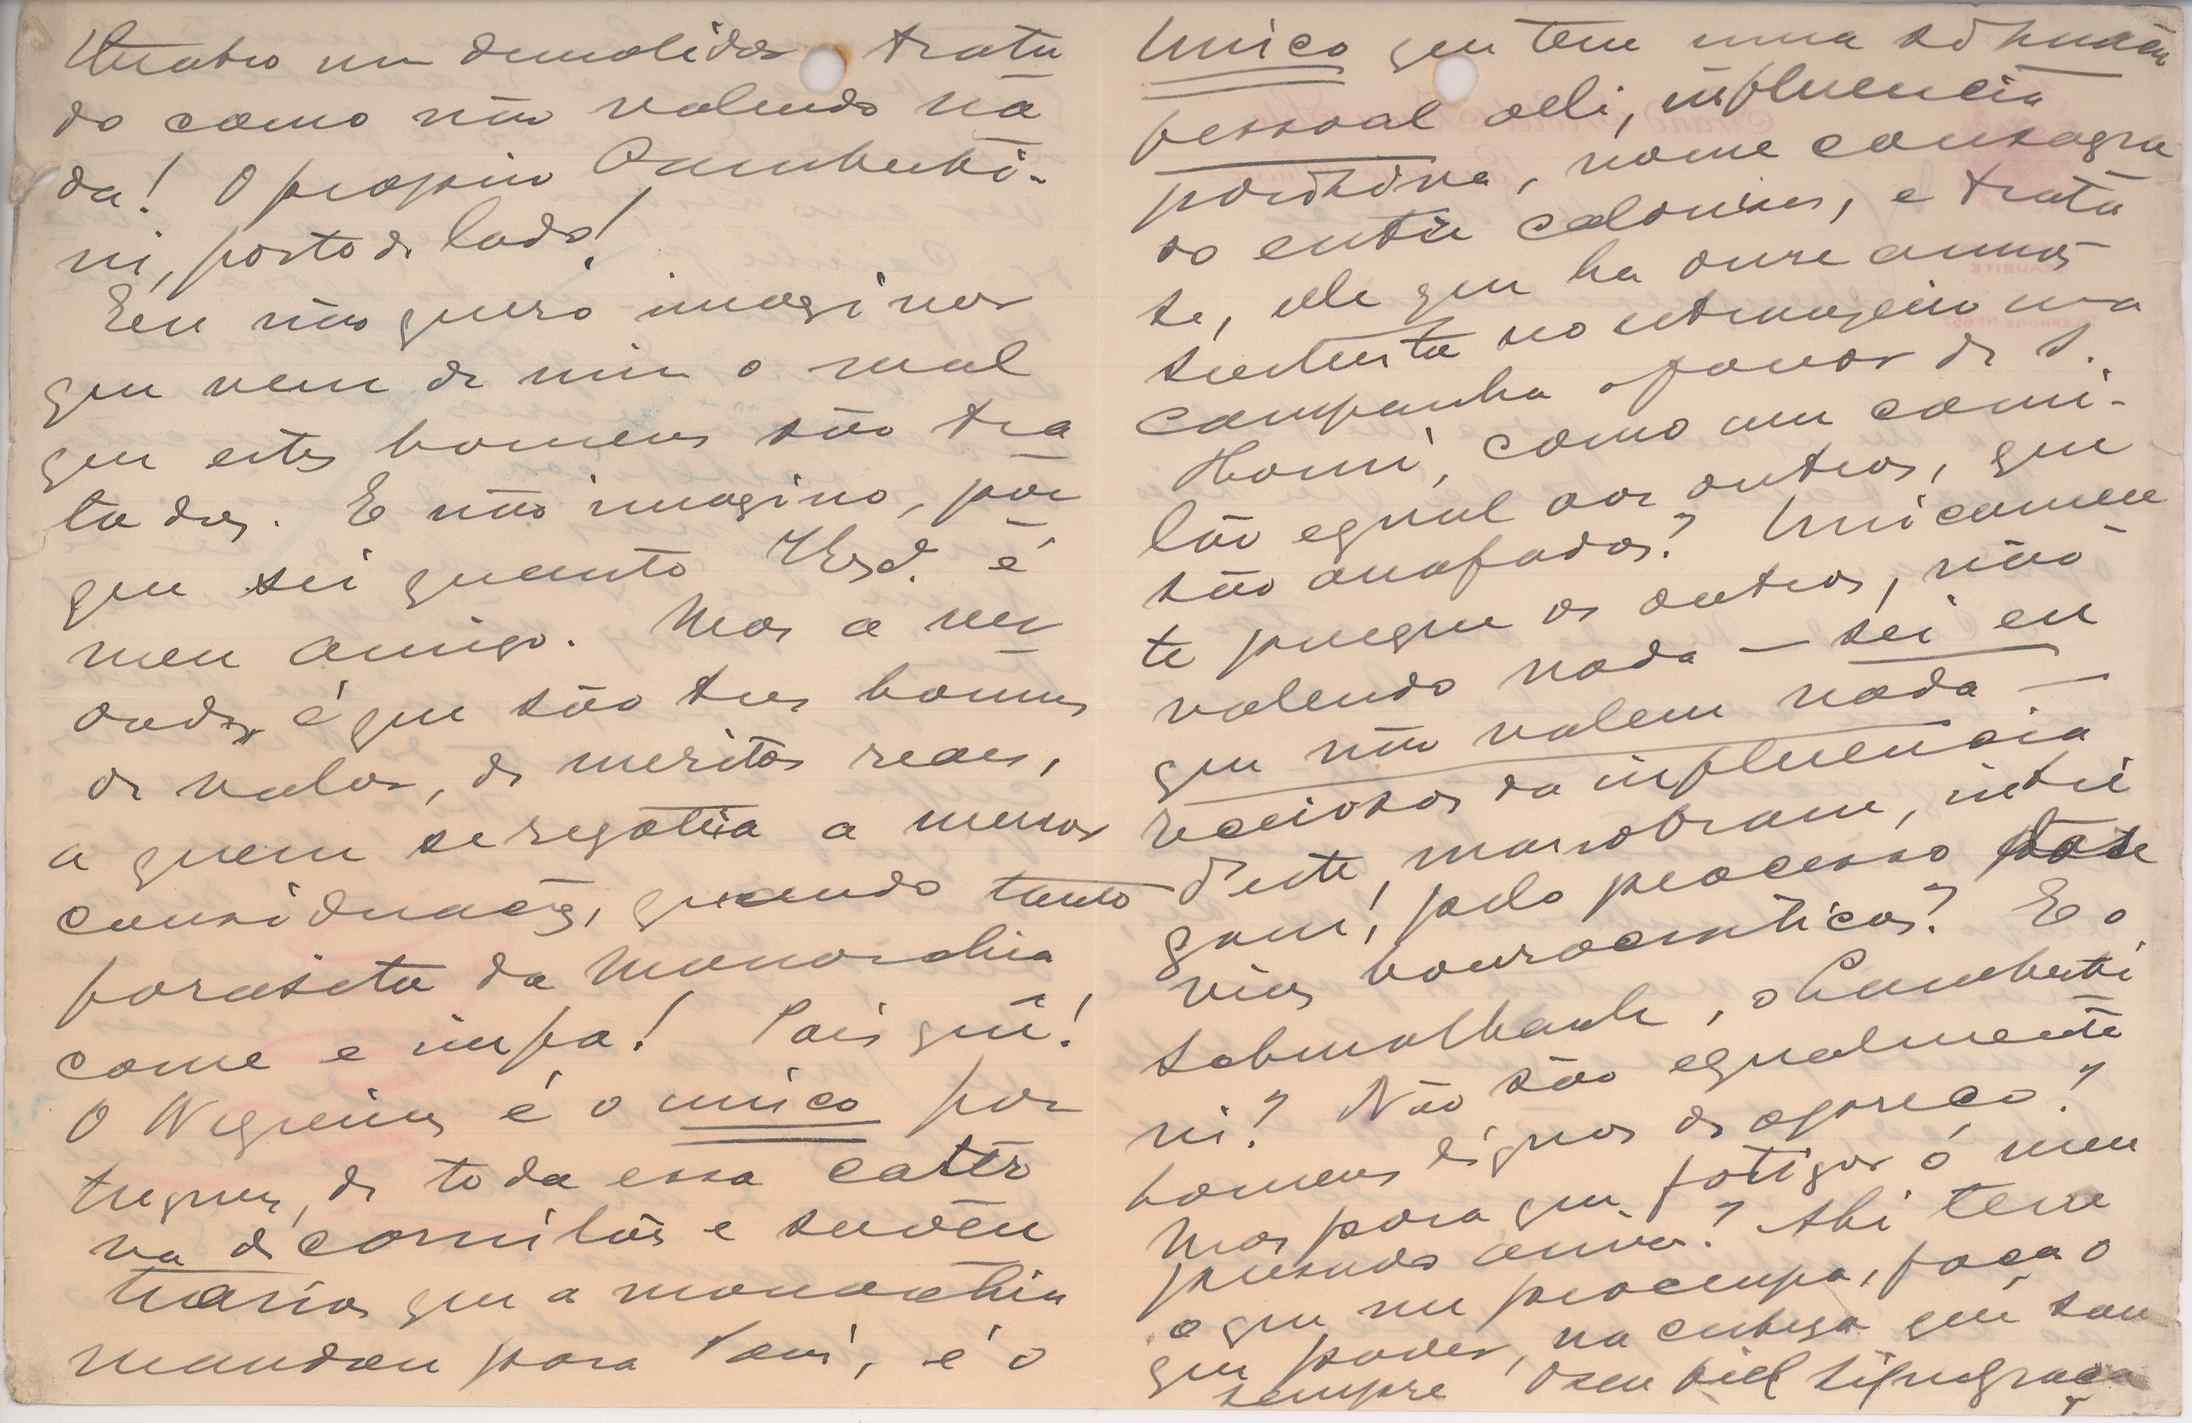 theatro um demolidor tratá
do como não valendo na
da! O proprio Lamberti-
ni, posto de lado!
Eu não quero imaginar
que vem de mim o mal
que estes homens são tra
tados. E não imagino, por
que sei quanto V. Ex.ª é
meu amigo. Mas a ver
dade, é que são tres homens
de valor, de meritos reaes,
a quem se regateia a menor
consideração, quando tanto
parasita da Monarchia
come e impa! Pois quê!
O Negreiros é o unico por
tuguez, de toda essa cater
va de comilões e
que a monarchia
mandou para Paris, é o
Unico que tem uma situação
pessoal alli, influencia
positiva, nome consagra
do entre colonias, e trata
se, elle que ha onze annos
sustenta no estrangeiro uma
campanha a favor de S.
Thomé, como um comi-
lão egual aos outros, que
são anafados? Unicamen
te porque os outros, não
valendo nada — sei eu
que não valem nada —
receiosos da influencia
d'este, manobram, intri
gam, pelo processo das
vias burocraticas? E o
Schmalbach, o Lamberti
ni? Não são egualmente
homens dignos de apreço?
Mas para que fatigar o meu
presado amigo? Ahi tem
o que me preocupa, faça o
que poder, na certeza que sou
sempre o seu fiel Silva Graça